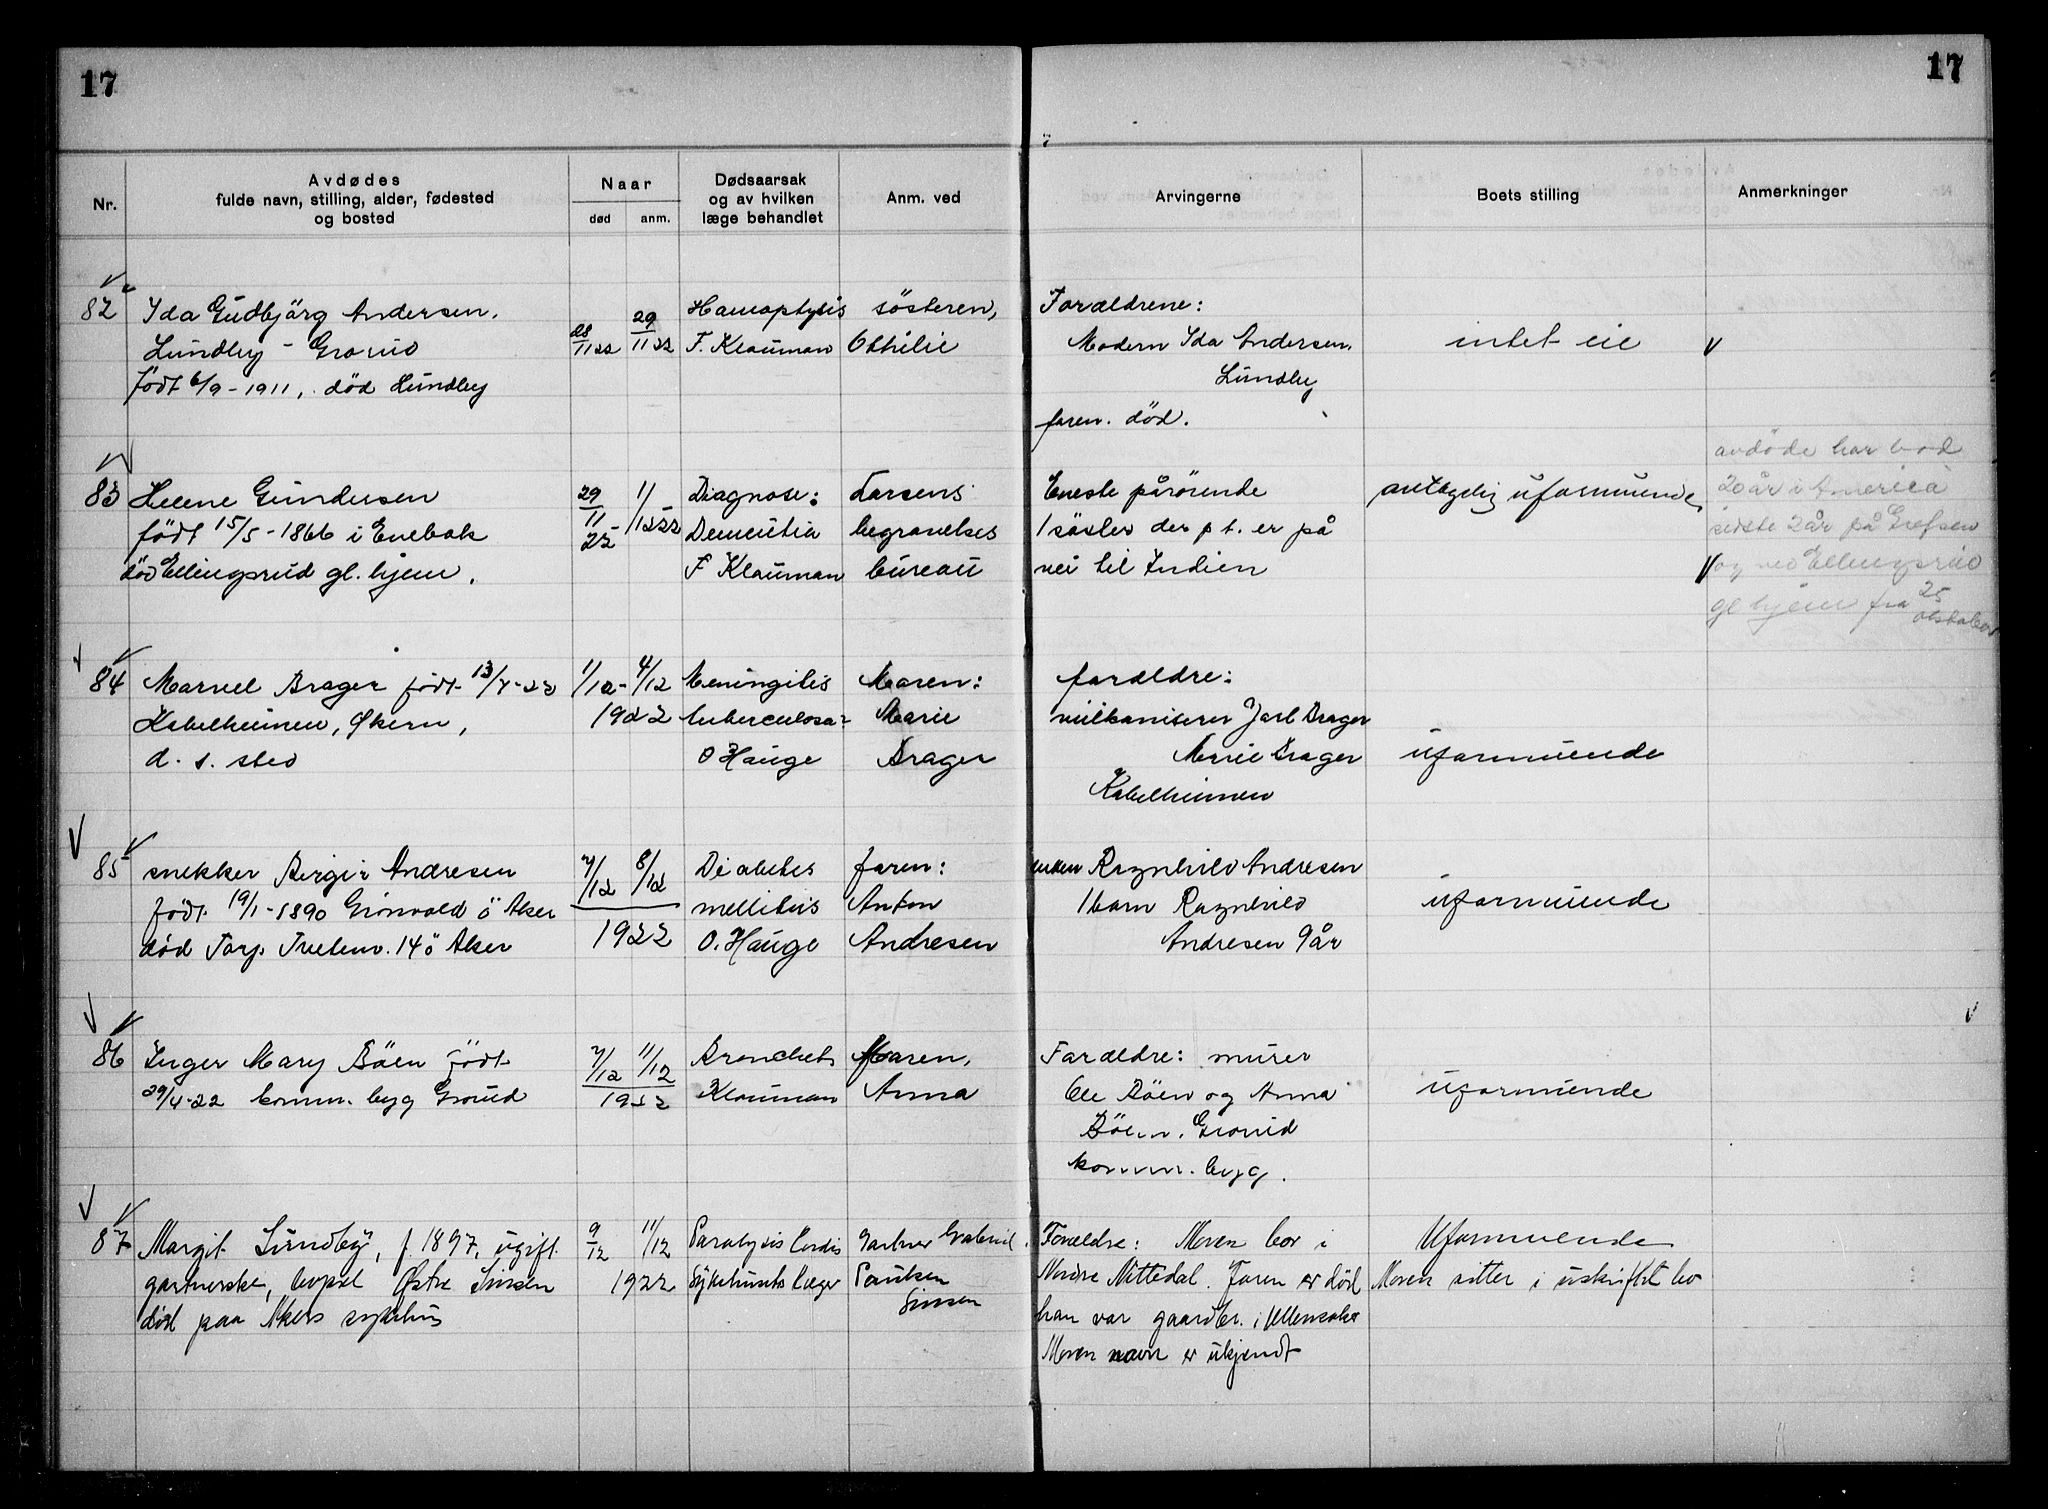 17
17
Nr.
Avdødes
fulde navn, stilling, alder, fødested
og bosted
Naar
død
anm.
Dødsaarsak
og av hvilken
læge behandlet
Anm. ved
Arvingerne
Boets stilling
Anmerkninger
82
Ida Gudbjörg Andersen.
Lundby - Grorud
født 6/9 - 1911, død Lundby
28/11 22
29/11 22
Hamoptysis
F. Klouman
sösteren,
Othilie
Forældrene:
Modern Ida Andersen.
Lundby
faren. död.
intet eie
83
Helene Gundersen
född 15/5 - 1866 i Enebak
död Ellingsrud gl. hjem.
29/11 22
1/12 22
Diagnose:
Dementia
F Klouman
Larsens
begravelses
bureau
Eneste pårörende
1 söster der p t. er på
vei til Indien
antagelig uformuende
avdöde har bod
20 år i America
sidste 2 år på Grefsen
og ved Ellingsrud
gl hjem fra 25
oktober
84
Marvel Brager født 13/4 - 22
Kabelheimen, Økern,
d. s. sted
1/12 - 4/12
1922
Meningitis
tuberculosa
O Hauge
Moren:
Marie
Brager
forældre:
Jarl Brager
Marie Brager
Kabelheimen
uformuende
85
snekker Birger Andresen
født 19/1 - 1890 Grönvold ö Aker
død Torp. Tvetenv. 14 ö Aker
7/12 8/12
1922
Diabetes
mellitus
O. Hauge
faren:
Anton
Andresen
enken Ragnhild Andresen
1 barn Ragnhild
Andresen 9 år
uformuende
86
Inger Mary Böen födt
29/4 - 22 komm. byg Grorud
7/12 11/12
1922
Bronchit
Klouman
Moren,
Anna
Forældre: murer
Ole Böen og Anna
Böen. Grorud
komm. byg.
uformuende
87
Margit Lundby, f. 1897, ugift
gartnerske, bopæl Østre Sinsen
död paa Akers sykehus
9/12 11/12
1922
Paralysis Cordis
Sykehusets Læger
Gartner Gabriel
Paulsen
Sinsen
Forældre: Moren bor i
Nordre Nittedal. Faren er död
han var gaardbr. i Ullensaker
Moren navn er ukjendt
Uformuende
Moren sitter i uskiftet bo